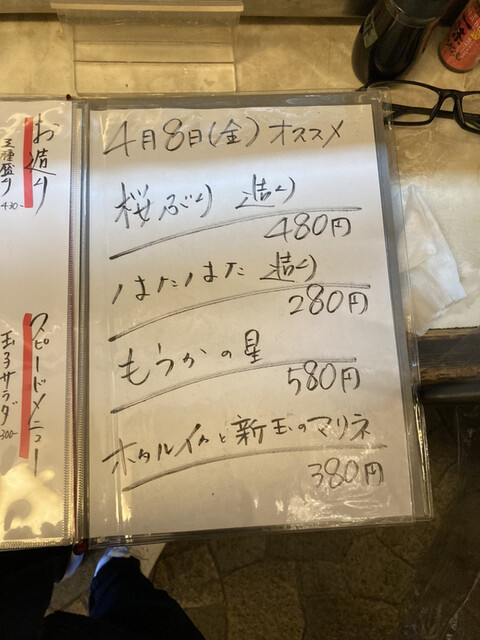 4月8日(金) オススメ
桜ぶり 造り
480円
はたはた 造り
280円
もうかの星
580円
ホタルイカと新玉のマリネ
380円
お造り
三種盛り
430-
スピードメニュー
玉子サラダ
300-